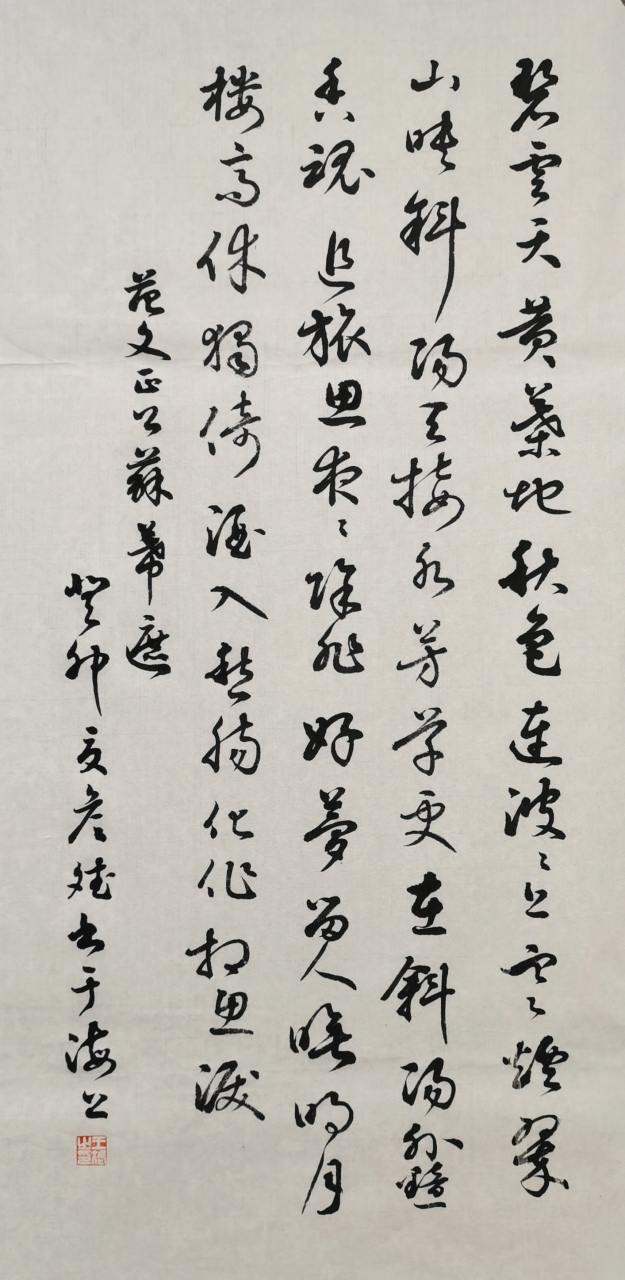 碧雲天黄葉地秋色連波〻上寒煙翠
山映斜陽天接水芳草更在斜陽外黯
鄉魂追旅思夜〻除非好夢留人睡明月
樓高休獨倚酒入愁腸化作相思淚
范文正公蘇幕遮
癸卯夏書于海上